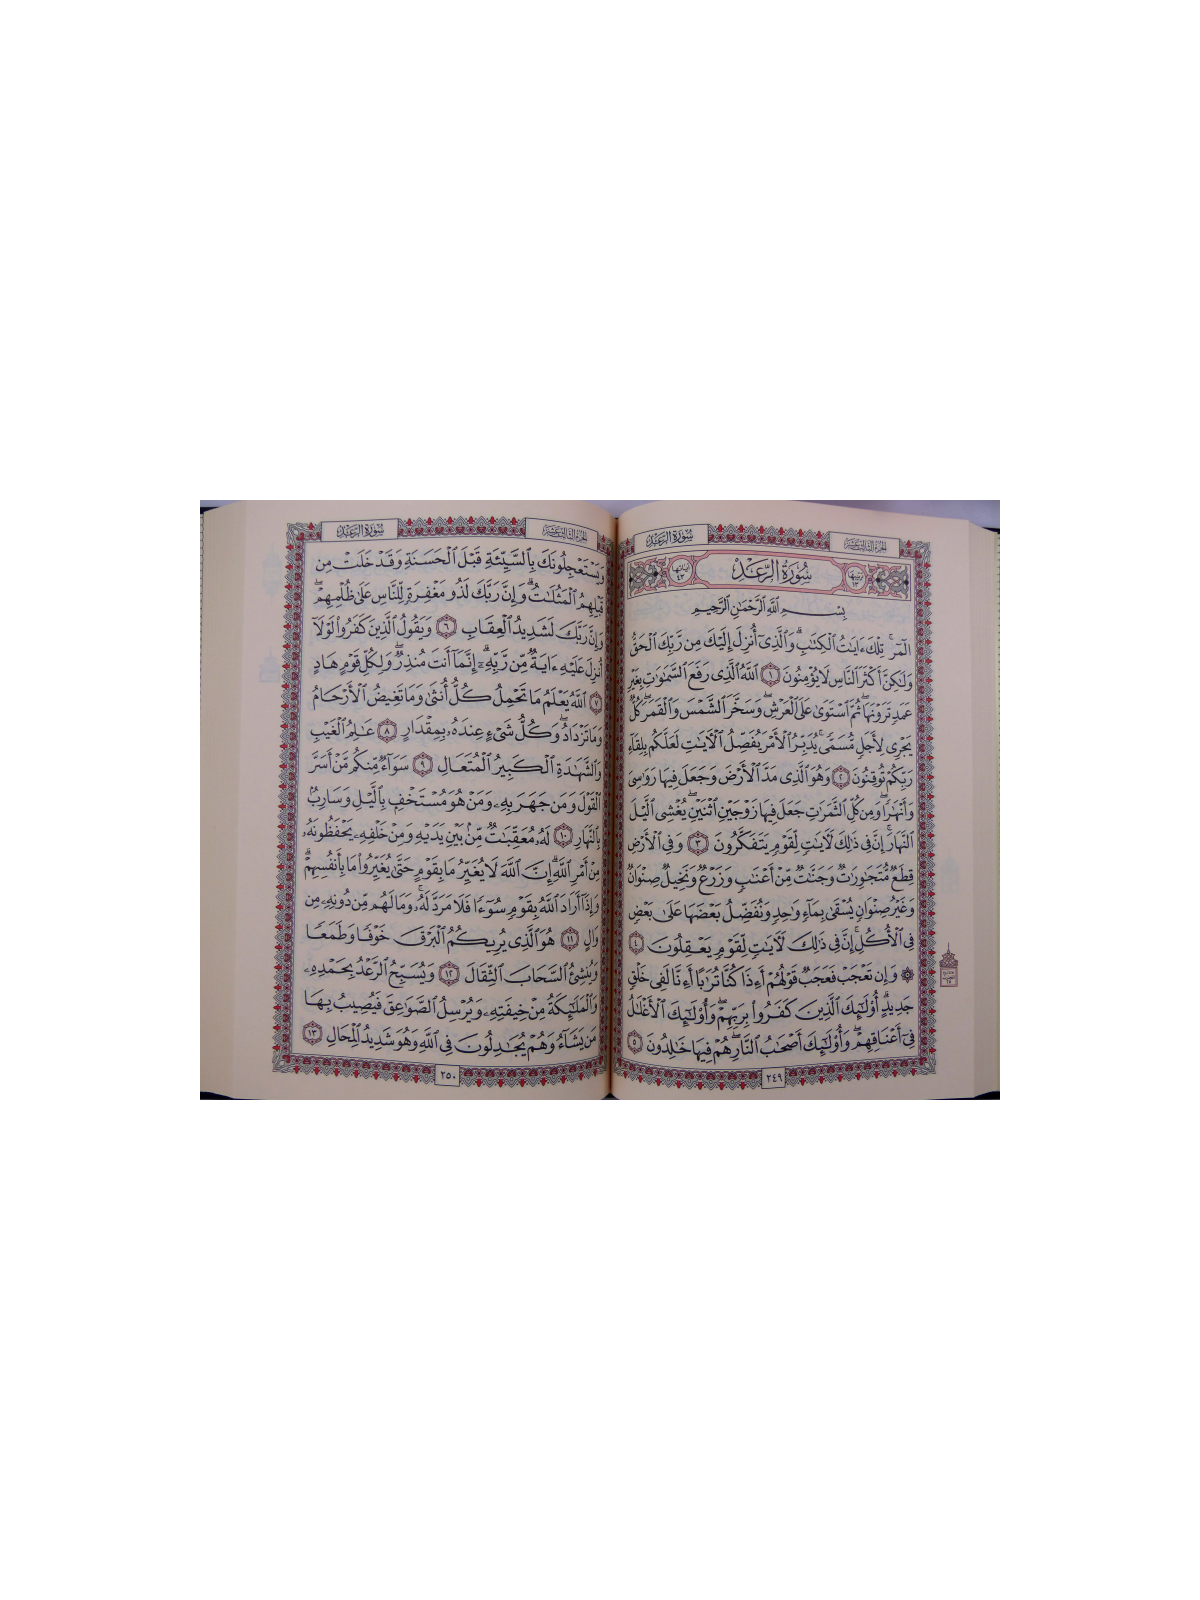 سُورَةُ الرَّعْدِ
الجزء الثالث عشر
ترتيبها ١٣
سُورَةُ الرَّعْدِ
آياتها ٤٣
بِسْمِ ٱللَّهِ ٱلرَّحْمَٰنِ ٱلرَّحِيمِ
الٓمٓر ۚ تِلْكَ ءَايَٰتُ ٱلْكِتَٰبِ ۗ وَٱلَّذِىٓ أُنزِلَ إِلَيْكَ مِن رَّبِّكَ ٱلْحَقُّ
وَلَٰكِنَّ أَكْثَرَ ٱلنَّاسِ لَا يُؤْمِنُونَ ١ ٱللَّهُ ٱلَّذِى رَفَعَ ٱلسَّمَٰوَٰتِ بِغَيْرِ
عَمَدٍ تَرَوْنَهَا ۖ ثُمَّ ٱسْتَوَىٰ عَلَى ٱلْعَرْشِ ۖ وَسَخَّرَ ٱلشَّمْسَ وَٱلْقَمَرَ ۖ كُلٌّ
يَجْرِى لِأَجَلٍ مُّسَمًّى ۚ يُدَبِّرُ ٱلْأَمْرَ يُفَصِّلُ ٱلْءَايَٰتِ لَعَلَّكُم بِلِقَآءِ
رَبِّكُمْ تُوقِنُونَ ٢ وَهُوَ ٱلَّذِى مَدَّ ٱلْأَرْضَ وَجَعَلَ فِيهَا رَوَٰسِىَ
وَأَنْهَٰرًا ۖ وَمِن كُلِّ ٱلثَّمَرَٰتِ جَعَلَ فِيهَا زَوْجَيْنِ ٱثْنَيْنِ ۖ يُغْشِى ٱلَّيْلَ
ٱلنَّهَارَ ۚ إِنَّ فِى ذَٰلِكَ لَءَايَٰتٍ لِّقَوْمٍ يَتَفَكَّرُونَ ٣ وَفِى ٱلْأَرْضِ
قِطَعٌ مُّتَجَٰوِرَٰتٌ وَجَنَّٰتٌ مِّنْ أَعْنَٰبٍ وَزَرْعٌ وَنَخِيلٌ صِنْوَانٌ
وَغَيْرُ صِنْوَانٍ يُسْقَىٰ بِمَآءٍ وَٰحِدٍ وَنُفَضِّلُ بَعْضَهَا عَلَىٰ بَعْضٍ
فِى ٱلْأُكُلِ ۚ إِنَّ فِى ذَٰلِكَ لَءَايَٰتٍ لِّقَوْمٍ يَعْقِلُونَ ٤
۞ وَإِن تَعْجَبْ فَعَجَبٌ قَوْلُهُمْ أَءِذَا كُنَّا تُرَٰبًا أَءِنَّا لَفِى خَلْقٍ
جَدِيدٍ ۗ أُو۟لَٰٓئِكَ ٱلَّذِينَ كَفَرُوا۟ بِرَبِّهِمْ ۖ وَأُو۟لَٰٓئِكَ ٱلْأَغْلَٰلُ
فِىٓ أَعْنَاقِهِمْ ۖ وَأُو۟لَٰٓئِكَ أَصْحَٰبُ ٱلنَّارِ ۖ هُمْ فِيهَا خَٰلِدُونَ ٥
٢٤٩
الجزء الثالث عشر
سُورَةُ الرَّعْدِ
وَيَسْتَعْجِلُونَكَ بِٱلسَّيِّئَةِ قَبْلَ ٱلْحَسَنَةِ وَقَدْ خَلَتْ مِن
قَبْلِهِمُ ٱلْمَثُلَٰتُ ۗ وَإِنَّ رَبَّكَ لَذُو مَغْفِرَةٍ لِّلنَّاسِ عَلَىٰ ظُلْمِهِمْ ۖ
وَإِنَّ رَبَّكَ لَشَدِيدُ ٱلْعِقَابِ ٦ وَيَقُولُ ٱلَّذِينَ كَفَرُوا۟ لَوْلَآ
أُنزِلَ عَلَيْهِ ءَايَةٌ مِّن رَّبِّهِۦٓ ۗ إِنَّمَآ أَنتَ مُنذِرٌ ۖ وَلِكُلِّ قَوْمٍ هَادٍ
٧ ٱللَّهُ يَعْلَمُ مَا تَحْمِلُ كُلُّ أُنثَىٰ وَمَا تَغِيضُ ٱلْأَرْحَامُ
وَمَا تَزْدَادُ ۖ وَكُلُّ شَىْءٍ عِندَهُۥ بِمِقْدَارٍ ٨ عَٰلِمُ ٱلْغَيْبِ
وَٱلشَّهَٰدَةِ ٱلْكَبِيرُ ٱلْمُتَعَالِ ٩ سَوَآءٌ مِّنكُم مَّنْ أَسَرَّ
ٱلْقَوْلَ وَمَن جَهَرَ بِهِۦ وَمَنْ هُوَ مُسْتَخْفٍۭ بِٱلَّيْلِ وَسَارِبٌۢ
بِٱلنَّهَارِ ١٠ لَهُۥ مُعَقِّبَٰتٌ مِّنۢ بَيْنِ يَدَيْهِ وَمِنْ خَلْفِهِۦ يَحْفَظُونَهُۥ
مِنْ أَمْرِ ٱللَّهِ ۗ إِنَّ ٱللَّهَ لَا يُغَيِّرُ مَا بِقَوْمٍ حَتَّىٰ يُغَيِّرُوا۟ مَا بِأَنفُسِهِمْ ۗ
وَإِذَآ أَرَادَ ٱللَّهُ بِقَوْمٍ سُوٓءًا فَلَا مَرَدَّ لَهُۥ ۚ وَمَا لَهُم مِّن دُونِهِۦ مِن
وَالٍ ١١ هُوَ ٱلَّذِى يُرِيكُمُ ٱلْبَرْقَ خَوْفًا وَطَمَعًا
وَيُنشِئُ ٱلسَّحَابَ ٱلثِّقَالَ ١٢ وَيُسَبِّحُ ٱلرَّعْدُ بِحَمْدِهِۦ
وَٱلْمَلَٰٓئِكَةُ مِنْ خِيفَتِهِۦ وَيُرْسِلُ ٱلصَّوَٰعِقَ فَيُصِيبُ بِهَا
مَن يَشَآءُ وَهُمْ يُجَٰدِلُونَ فِى ٱللَّهِ وَهُوَ شَدِيدُ ٱلْمِحَالِ ١٣
٢٥٠